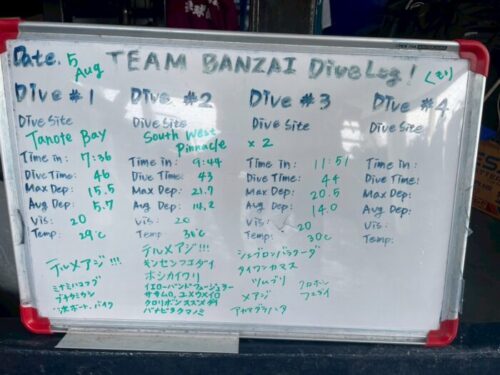 Date. 5 Aug
TEAM BANZAI Dive Log!
Dive #1
Dive Site
Tanote Bay
Time in: 7:36
Dive Time: 46
Max Dep: 15.5
Avg Dep: 5.7
Vis: 20
Temp: 29℃
テルメアジ!!!
Dive #2
Dive Site
South West Pinnacle
Time in: 9:44
Dive Time: 43
Max Dep: 21.7
Avg Dep: 14.2
Vis: 20
Temp: 30℃
テルメアジ!!!
キンセンフエダイ
ホシカイワリ
イエローバンドフュージュラー
ササムロ、ユメウメイロ
クロリボンスズメダイ
ハナビラクマノミ
Dive #3
Dive Site
×2
Time in: 11:51
Dive Time: 44
Max Dep: 20.5
Avg Dep: 14.0
Vis: 20
Temp: 30℃
シェブロンバラクーダ
タイワンカマス
ツムブリ
メアジ
クロホシフエダイ
Dive #4
Dive Site
Time in:
Dive Time:
Max Dep:
Avg Dep:
Vis:
Temp: